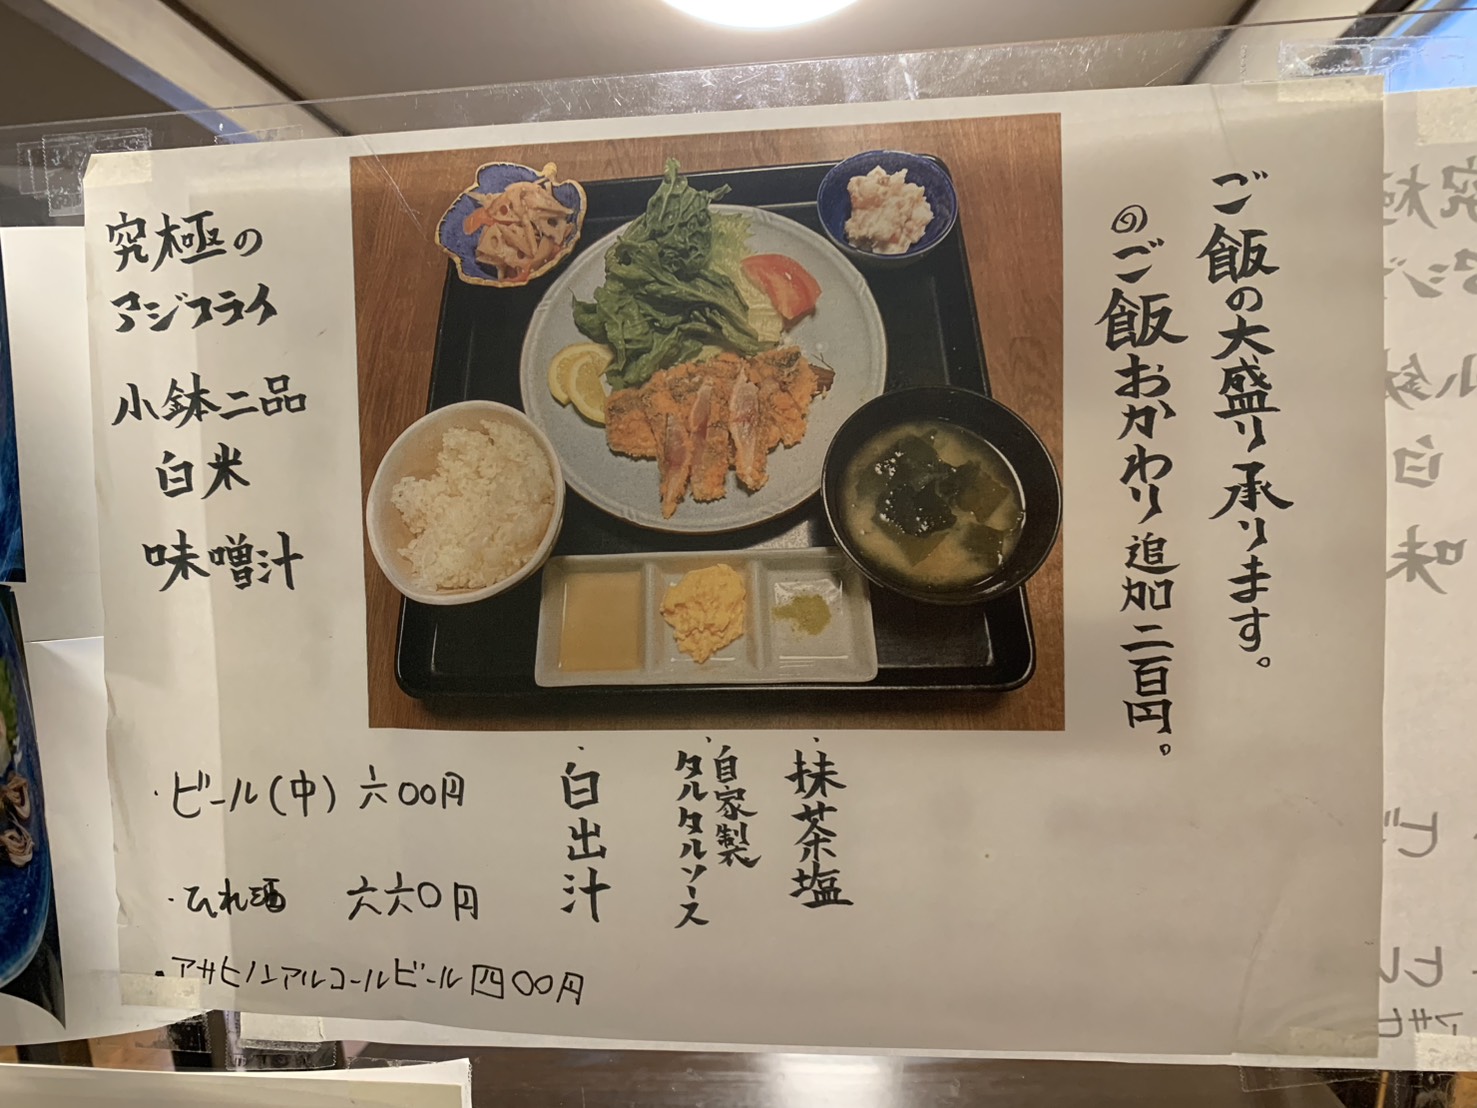 ご飯の大盛り承ります。
◎ご飯おかわり追加二百円。
究極の
アジフライ
小鉢二品
白米
味噌汁
・抹茶塩
・自家製
タルタルソース
・白出汁
・ビール(中) 六〇〇円
・ひれ酒 六六〇円
・アサヒノンアルコールビール 四〇〇円